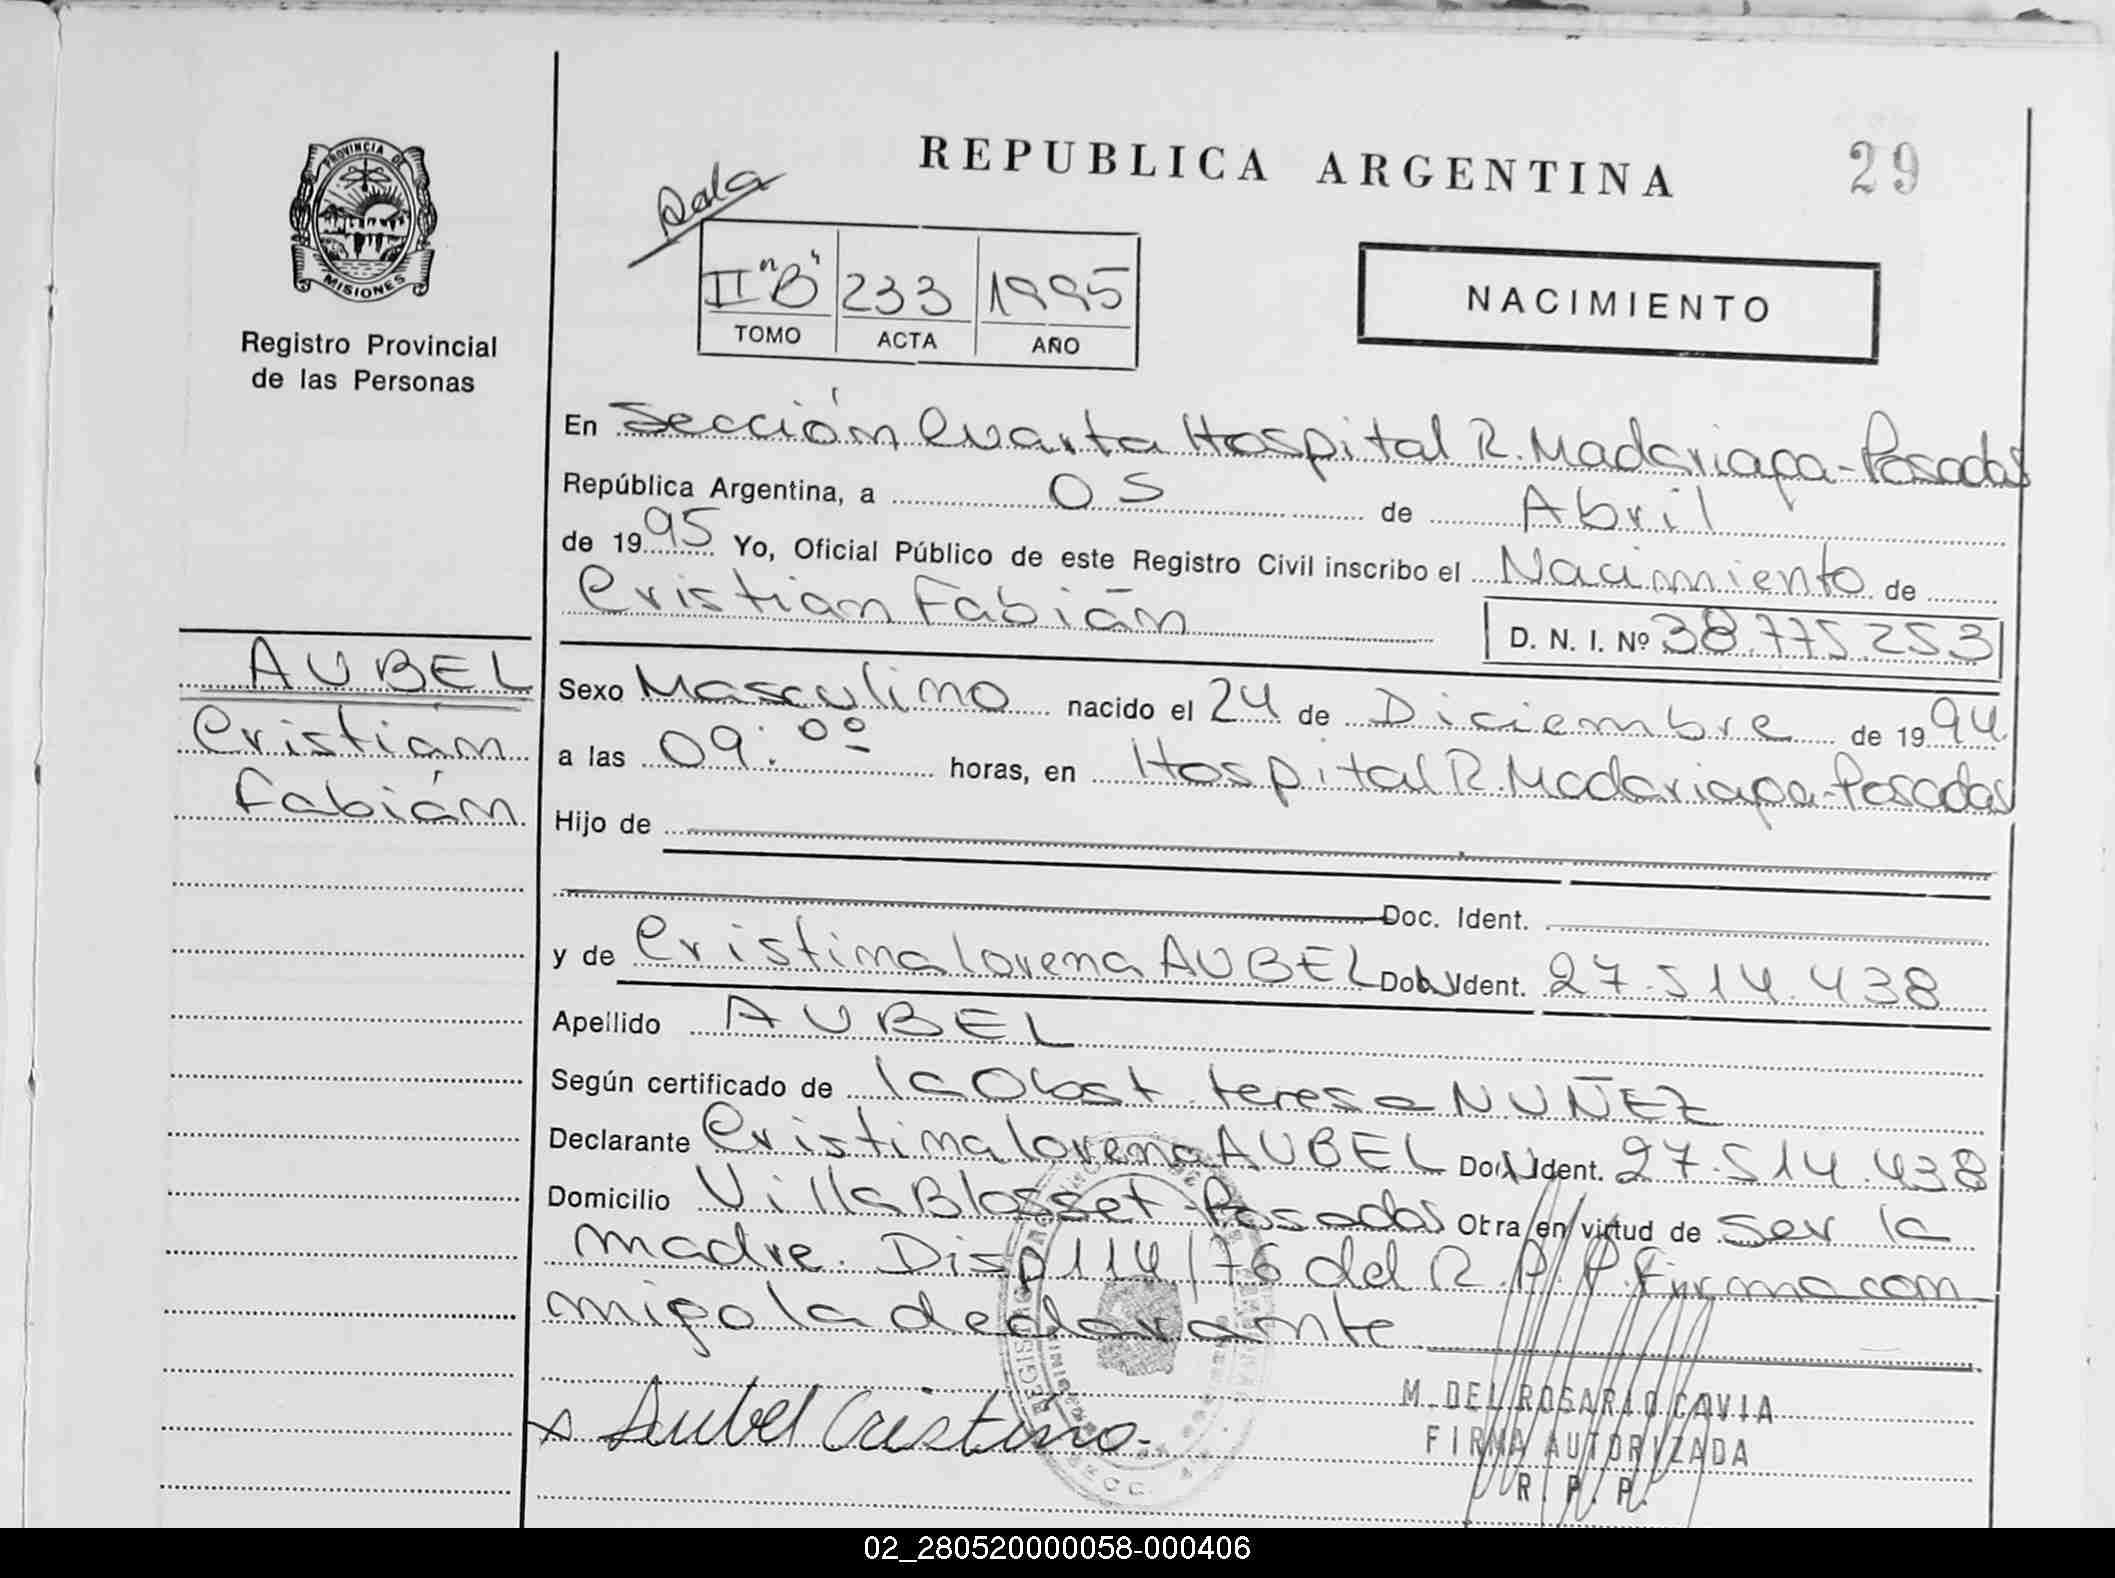 PROVINCIA DE
MISIONES
Registro Provincial
de las Personas
REPUBLICA ARGENTINA
29
II "B" 233 1995
TOMO ACTA AÑO
NACIMIENTO
En Sección Cuarta Hospital R. Madariaga - Posadas
República Argentina, a 05 de Abril
de 1995 Yo, Oficial Público de este Registro Civil inscribo el Nacimiento de
Cristian Fabián
D. N. I. Nº 38.775.253
AUBEL
Cristián
Fabián
Sexo Masculino nacido el 24 de Diciembre de 1994
a las 09:00 horas, en Hospital R. Madariaga - Posadas
Hijo de
Doc. Ident.
y de Cristina Lorena AUBEL Doc. Ident. 27.514.438
Apellido AUBEL
Según certificado de la Obst. teresa NUÑEZ
Declarante Cristina Lorena AUBEL Doc. Ident. 27.514.438
Domicilio Villa Blosset - Posadas Otra en virtud de ser la
madre. Disp 114/76 del R. P. P. Firma con
migo la declarante
x Aubel Cristina.
M. DEL ROSARIO CAVIA
FIRMA AUTORIZADA
R. P. P.
02_280520000058-000406